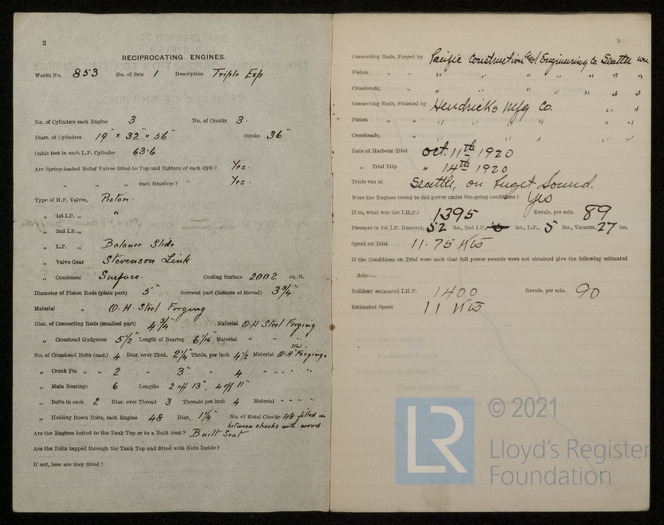 2
RECIPROCATING ENGINES.
Works No. 853 No. of sets 1 Description Triple Exp
No. of Cylinders each Engine 3 No. of Cranks 3.
Diars. of Cylinders 19" × 32" × 56" Stroke 36"
Cubic feet in each L.P. Cylinder 63.6
Are Spring-loaded Relief Valves fitted to Top and Bottom of each Cylr.? Yes.
„ „ „ „ each Receiver? Yes.
Type of H.P. Valves, Piston.
„ 1st I.P. „ "
„ 2nd I.P. „
„ L.P. „ Balance Slide
„ Valve Gear Stevenson Link
„ Condenser Surface. Cooling Surface 2002 sq. ft.
Diameter of Piston Rods (plain part) 5" Screwed part (bottom of thread) 3 3/4"
Material „ O.H. Steel Forging
Diar. of Connecting Rods (smallest part) 4 3/4" Material O.H Steel Forging
„ Crosshead Gudgeons 5 1/2" Length of Bearing 6 1/16 Material " " "
No. of Crosshead Bolts (each) 4 Diar. over Thrd. 2 1/4" Thrds. per inch 4 1/2 Material O.H Steel Forging.
„ Crank Pin „ 2 „ 3" „ 4 „ " " "
„ Main Bearings 6 Lengths 2 off 13", 4 off 11"
„ Bolts in each 2 Diar. over Thread 3 Threads per inch 4 Material " " "
„ Holding Down Bolts, each Engine 48 Diar. 1 1/4" No. of Metal Chocks 48 filled in
between chocks with wood
Are the Engines bolted to the Tank Top or to a Built Seat? Built Seat
Are the Bolts tapped through the Tank Top and fitted with Nuts Inside?
If not, how are they fitted?
3
Connecting Rods, Forged by Pacific Construction & Engineering Co. Seattle Wn
Piston „ „ " " " " "
Crossheads, „ " " " " "
Connecting Rods, Finished by Hendricks Mfg Co. " "
Piston „ „ " " " " "
Crossheads, „ " " " " "
Date of Harbour Trial Oct. 11th 1920
„ Trial Trip „ 14th 1920
Trials run at Seattle, on Puget Sound.
Were the Engines tested to full power under Sea-going conditions? Yes
If so, what was the I.H.P.? 1395 Revols. per min. 89
Pressure in 1st I.P. Receiver, 52 lbs., 2nd I.P., lbs., L.P., 5 lbs., Vacuum, 27 ins.
Speed on Trial 11.75 Kts
If the Conditions on Trial were such that full power records were not obtained give the following estimated
data:—
Builders' estimated I.H.P. 1400 Revols. per min. 90
Estimated Speed 11 Kts
LR
© 2021
Lloyd's Register
Foundation